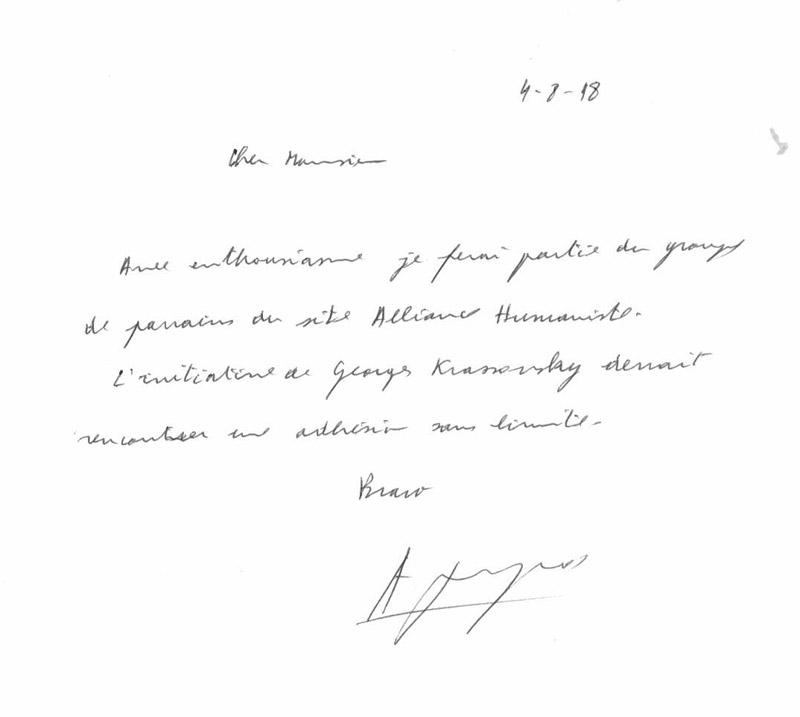 4-8-18
Cher Monsieur
Avec enthousiasme je ferai partie du groupe
de parrains du site Alliance Humaniste.
L'initiative de Georges Krassovsky devrait
rencontrer une adhésion sans limite.
Bravo